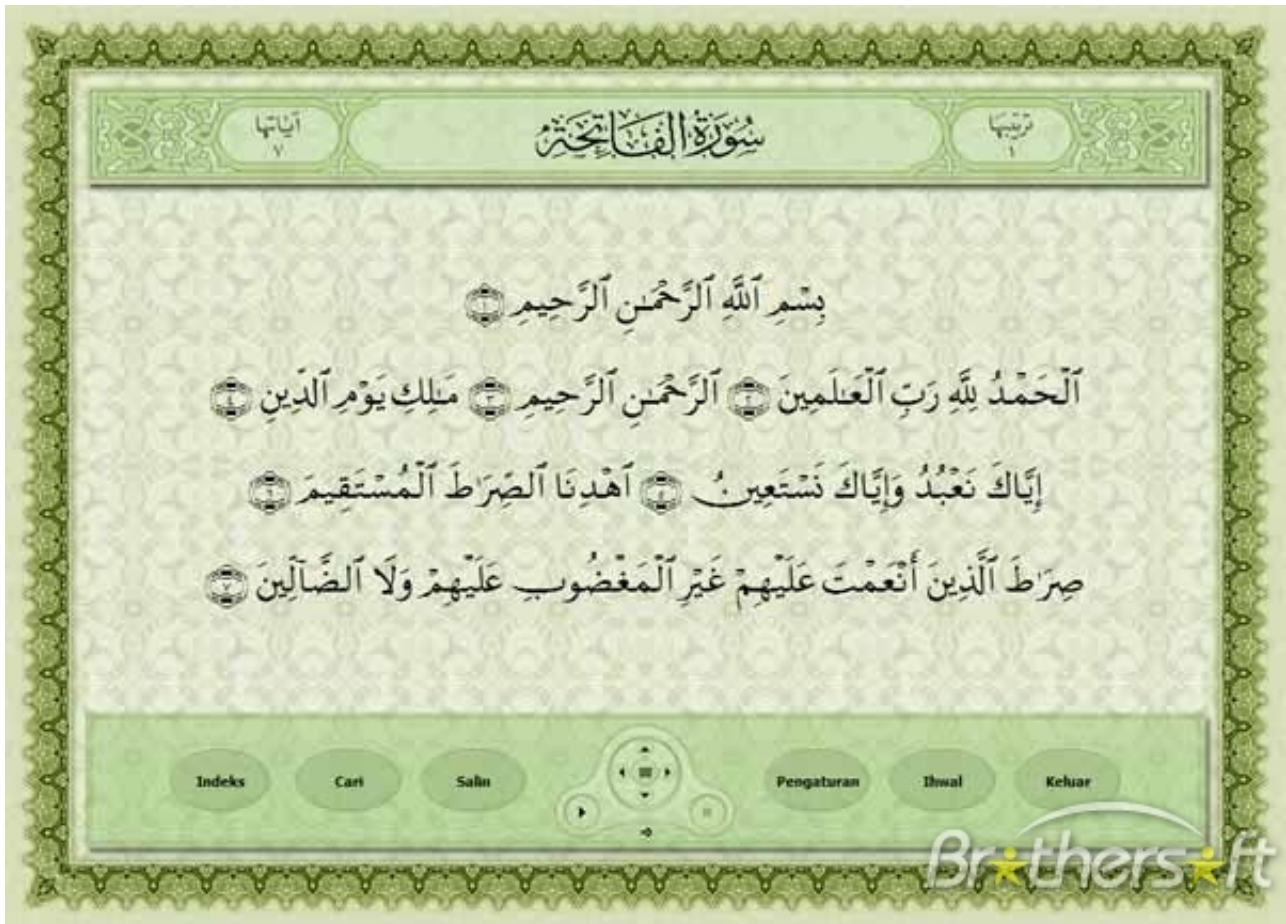 ترتيبها
١
سُورَةُ الفَاتِحَةِ
آياتها
٧
بِسْمِ ٱللَّهِ ٱلرَّحْمَـٰنِ ٱلرَّحِيمِ ١
ٱلْحَمْدُ لِلَّهِ رَبِّ ٱلْعَـٰلَمِينَ ٢ ٱلرَّحْمَـٰنِ ٱلرَّحِيمِ ٣ مَـٰلِكِ يَوْمِ ٱلدِّينِ ٤
إِيَّاكَ نَعْبُدُ وَإِيَّاكَ نَسْتَعِينُ ٥ ٱهْدِنَا ٱلصِّرَٰطَ ٱلْمُسْتَقِيمَ ٦
صِرَٰطَ ٱلَّذِينَ أَنْعَمْتَ عَلَيْهِمْ غَيْرِ ٱلْمَغْضُوبِ عَلَيْهِمْ وَلَا ٱلضَّآلِّينَ ٧
Indeks Cari Salin Pengaturan Ihwal Keluar
Brothersoft